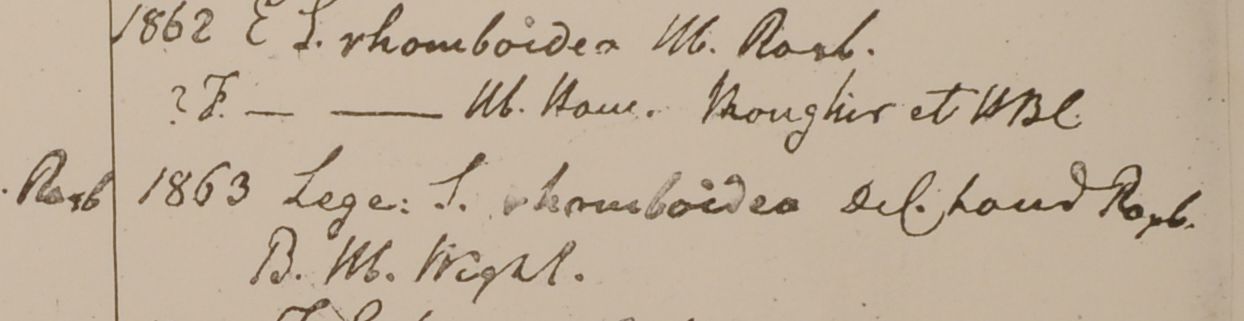 1862 E S. rhomboidea Hb. Roxb.
? F. — — Hb. Ham. Monghir et HBC
. Roxb 1863 Lege: S. rhomboidea Del. haud Roxb.
B. Hb. Wight.